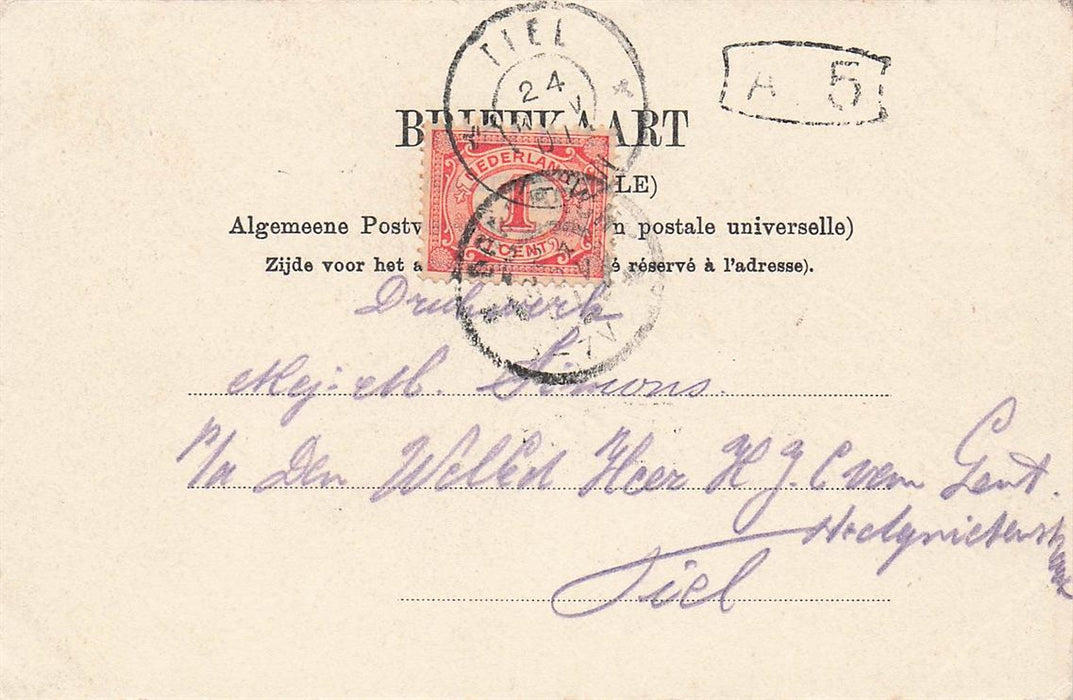 TIEL
24
A 5
BRIEFKAART
LE)
Algemeene Postv n postale universelle)
Zijde voor het a é réservé à l'adresse).
NEDERLAND
1
CENT
Drukwerk
Mej: M. Simons.
p/a Den WelEd Heer H J. C van Gent.
Tiel